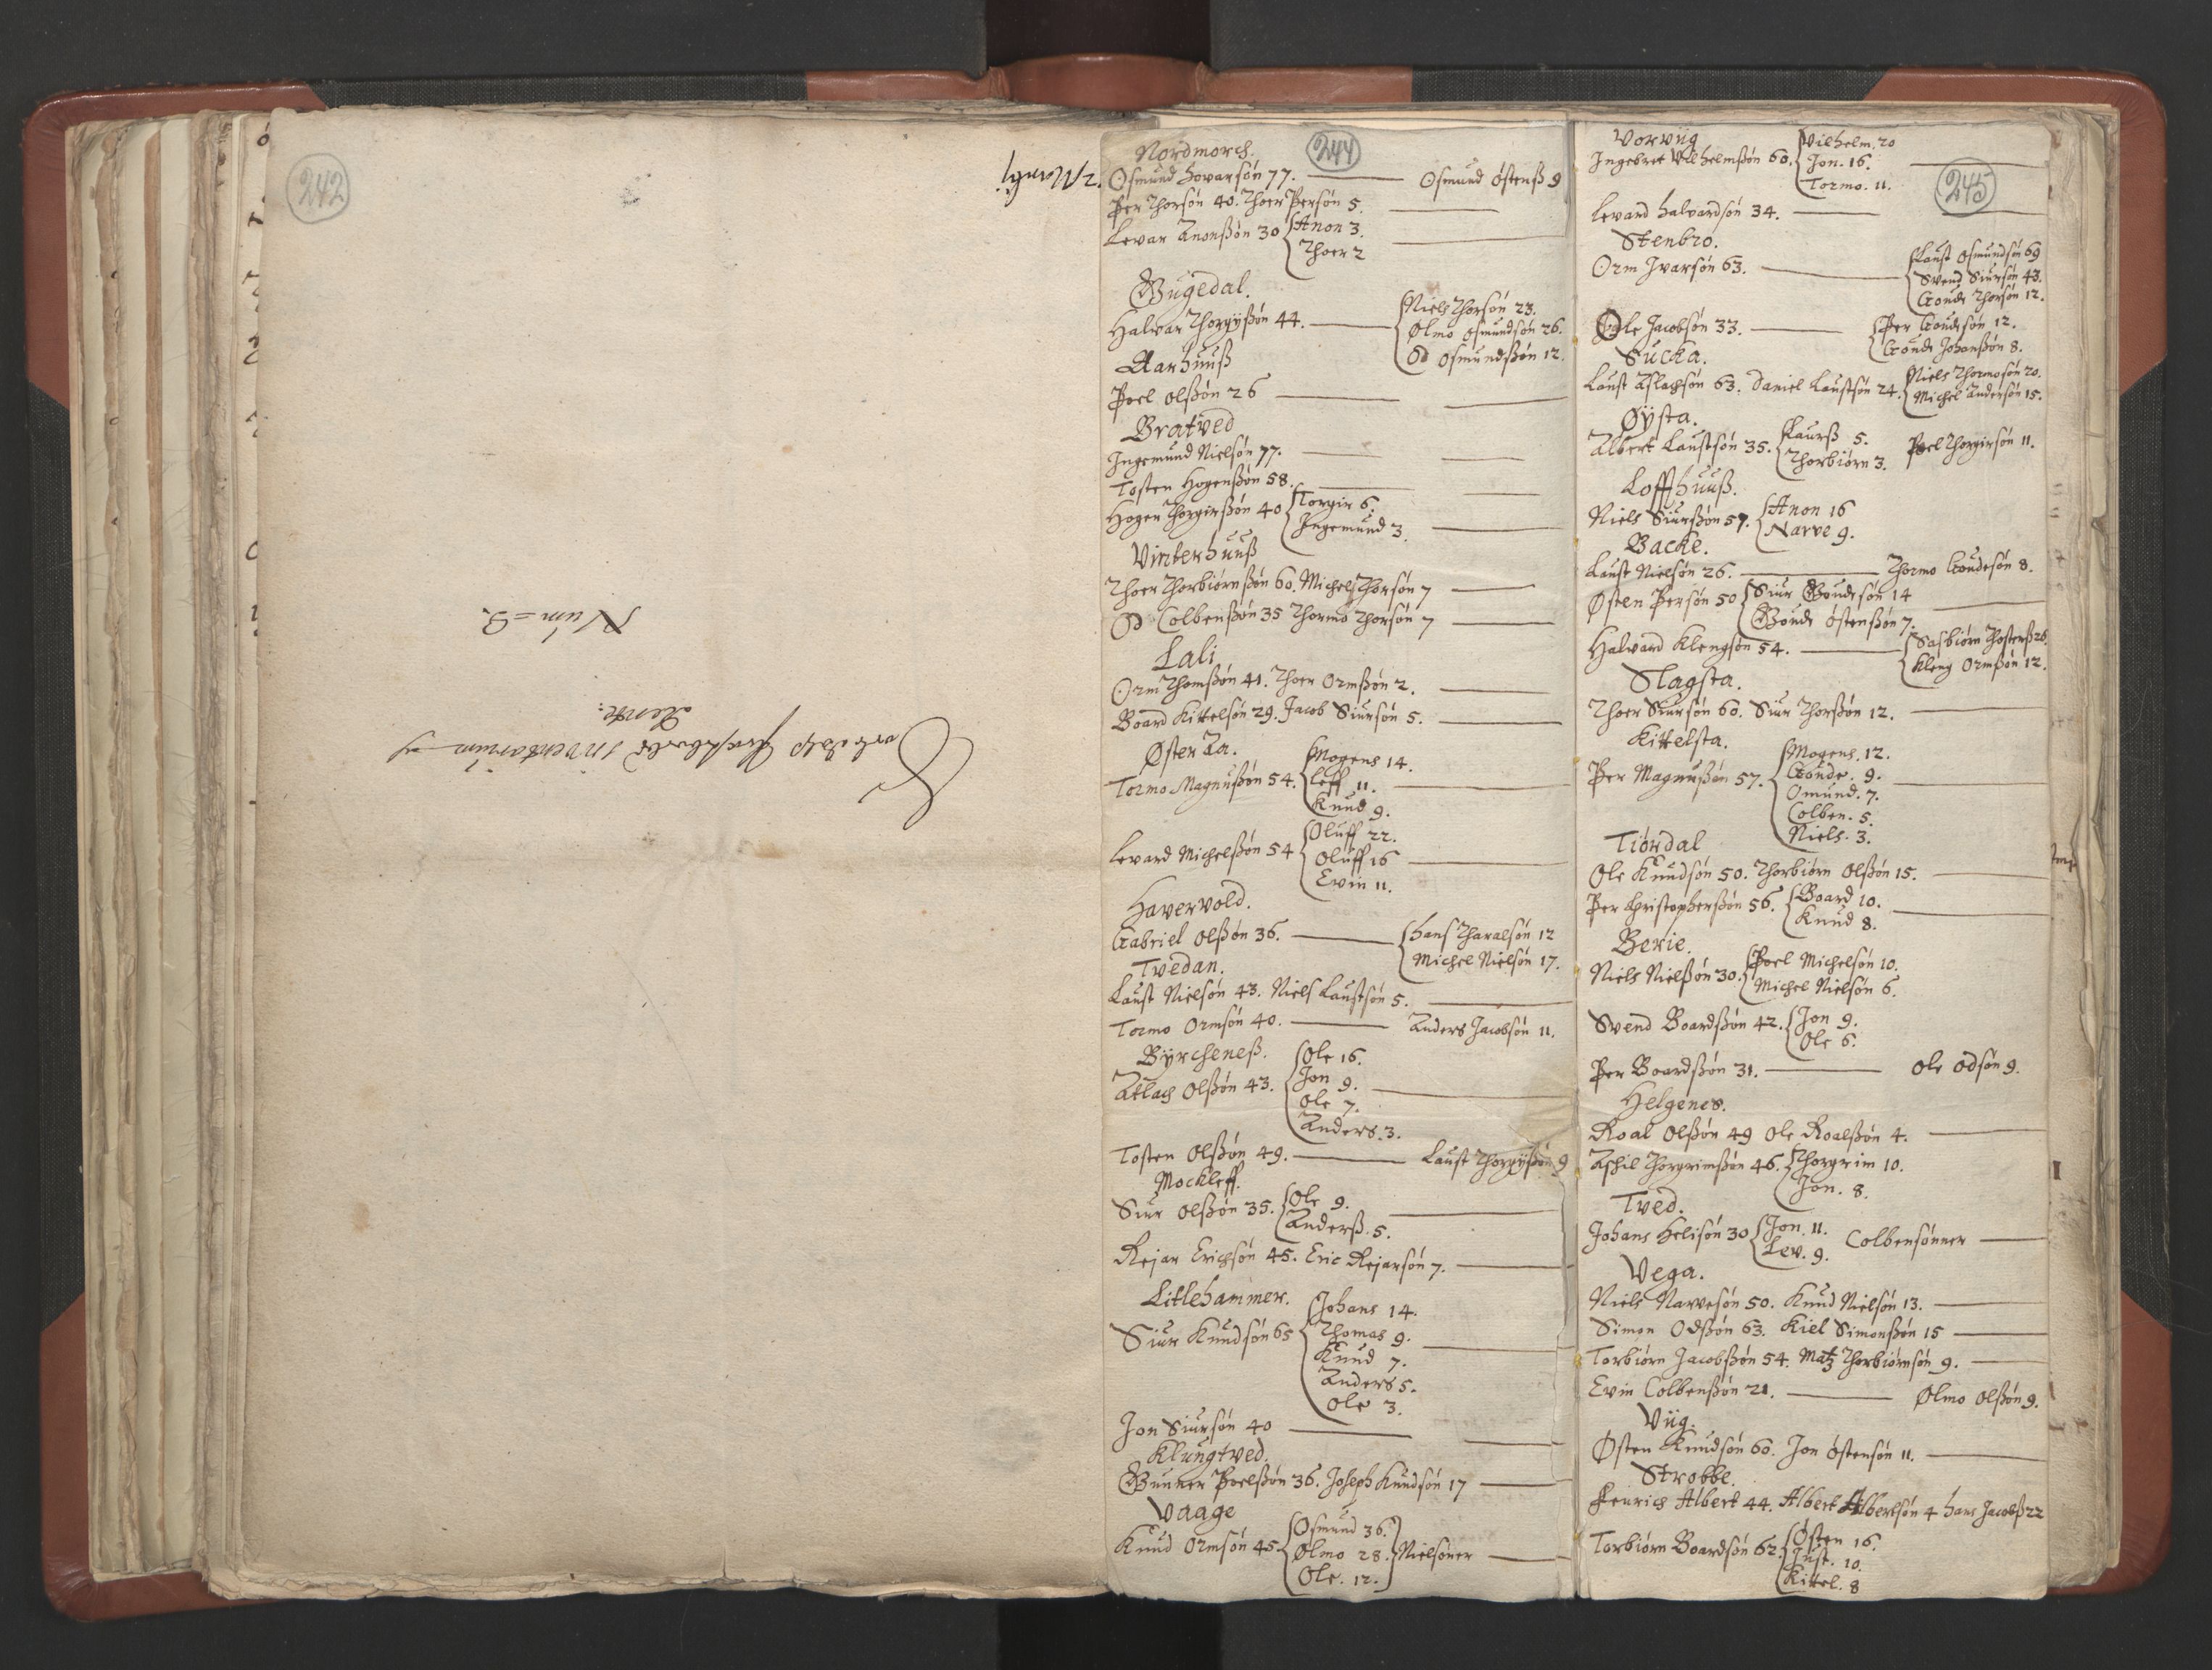 242
Num=3.
244
Nordmorch.
Osmund hovarsøn 77. Osmund Østensß 9
Per Thorsøn 40. Thoer Persøn 5.
Levar Anonßøn 30 Anon 3.
Thoer 2
Gugedal.
Halvar Thorgyßøn 44. Niels Thorsøn 23.
Ølmo osmundsøn 26.
Od osmundsßøn 12.
Aarhuuß
Poel olßøn 26
Bratved
Ingemund Nielsøn 77.
Tosten Hogenßøn 58.
Hogen Thorgirßøn 40 Torgir 6.
Ingemund 3.
Vinterhuuß
Thoer Thorbiørnßøn 60. Michel Thorsøn 7
Od Colbenßøn 35 Thormo Thorsøn 7
Lali
Orm Thomßøn 41. Thoer Ormßøn 2.
Board Kittelsøn 29. Jacob Siursøn 5.
Øster Aa.
Tormo Magnußøn 54. Mogens 14.
Leff 11.
Knud 9.
Levard Michelßøn 54 Oluff 22.
Oluff 16
Evin 11.
Havervold.
Gabriel olßøn 36. Hans Tharalsøn 12
Michel Nielsøn 17.
Tvedan.
Laust Nielsøn 43. Niels Laustsøn 5.
Tormo Ormsøn 40. Anders Jacobsøn 11.
Byrcheneß.
Atlach olßøn 43. Ole 16.
Jon 9.
Ole 7.
Anders. 3.
Tosten olßøn 49. Laust Thorgyßøn 9
Mockleff.
Siur olßøn 35. Ole 9.
Anderß. 5.
Rejar Erichsøn 45. Eric Rejarsøn 7.
Litlehammer.
Siur Knudsøn 65 Johans 14.
Thomas 9.
Knud 7.
Anders 5.
Ole 3.
Jon Siursøn 40
Klungtved.
Gunner Poelßøn 36. Joseph Knudsøn 17
Vaage
Knud Ormsøn 45. Osmund 36.
Ølmo 28. Nielsøner
Ole. 12.
245
Vorviig
Ingebret Vilhelmßøn 60. Vilhelm. 20
Jon. 16.
Tormo. 11.
Levard halvardsøn 34.
Stenbro.
Orm Ivarsøn 63. Laust osmundsøn 69
Svend Siursøn 43.
Goude Thorsøn 12.
Ole Jacobsøn 33. Per Goudesøn 12.
Goude Johanßøn 8.
Sucka.
Laust Aslachsøn 63. Daniel Laustsøn 24. Niels Thormosøn 20.
Michel Andersøn 15.
Øysta.
Albert Laustsøn 35. Laurß 5.
Thorbiørn 3. Poel Thorgirsøn 11.
Loffthuuß.
Niels Siurßøn 57. Anon 16
Narve 9.
Backe.
Laust Nielsøn 26. Thormo Goudesøn 8.
Østen Persøn 50 Siur Goudesøn 14
Goude Østenßøn 7.
Halvard Klengsøn 54.
Kleng Ormßøn 12.
Slagsta.
Thoer Siursøn 60. Siur Thorßøn 12.
Kittelsta.
Per Magnußøn 57. Mogens. 12.
Goude. 9.
Omund. 7.
Colben. 5.
Niels. 3.
Tiørdal
Ole Knudsøn 50. Thorbiørn olßøn 15.
Per Christopherßøn 56. Board 10.
Knud 8.
Berie.
Niels Nielßøn 30. Poel Michelsøn 10.
Michel Nielsøn 6.
Svend Boardßøn 42. Jon 9.
Ole 6.
Per Boardßøn 31. Ole odsøn 9.
Helgenes.
Roal olßøn 49 Ole Roalßøn 4.
Aschil Thorgrimßøn 46. Thorgrim 10.
Jon. 8.
Tved.
Johans Helisøn 30 Jon. 11.
Lev. 9. Colbensønner
Vega.
Niels Narvesøn 50. Knud Nielsøn 13.
Simon Odßøn 63. Kiel Simonßøn 15
Torbiørn Jacobßøn 54. Matz Thorbiørnsøn 9.
Evin Colbenßøn 21. Ølmo olßøn 9.
Viig.
Østen Knudsøn 60. Jon Østensøn 11.
Strobbe.
Henrich Albert 44. Albert Albertsøn 4 hans Jacobß 22
Torbiørn Boardsøn 62. Østen 16.
Just. 10.
Kittel. 8